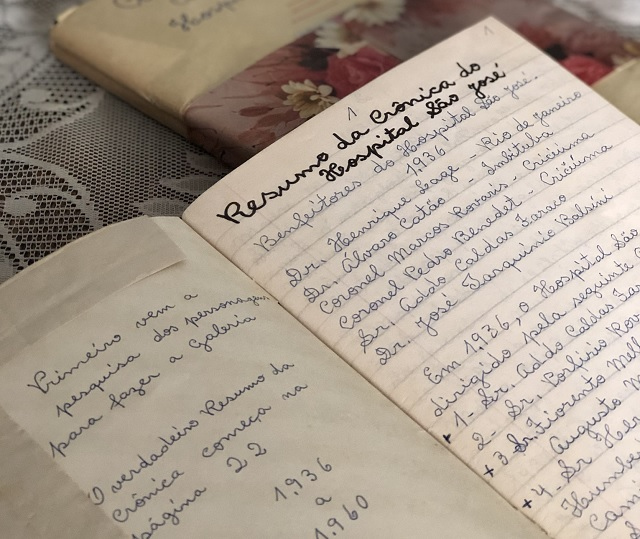 Hospital
Primeiro vem a
pesquisa dos personagens
para fazer a Galeria
O verdadeiro Resumo da
Crônica começa na
página 22
1.936
a
1.960
1
1
Resumo da Crônica do
Hospital São José
Benfeitores do Hospital São José.
1936
Dr. Henrique Lage - Rio de Janeiro
Dr. Álvaro Catão - Imbituba
Coronel Marcos Rovaris - Criciúma
Coronel Pedro Benedet - Criciúma
Sr. Addo Caldas Faraco
Dr. José Tarquinio Balsini
Em 1936, o Hospital São
dirigido pela seguinte
+ 1- Sr. Addo Caldas Far
2- Sr. Porfirio Rov
+ 3- Sr. Fiorento Mell
Augusto M
+ 4- Sr. Her
Humbe